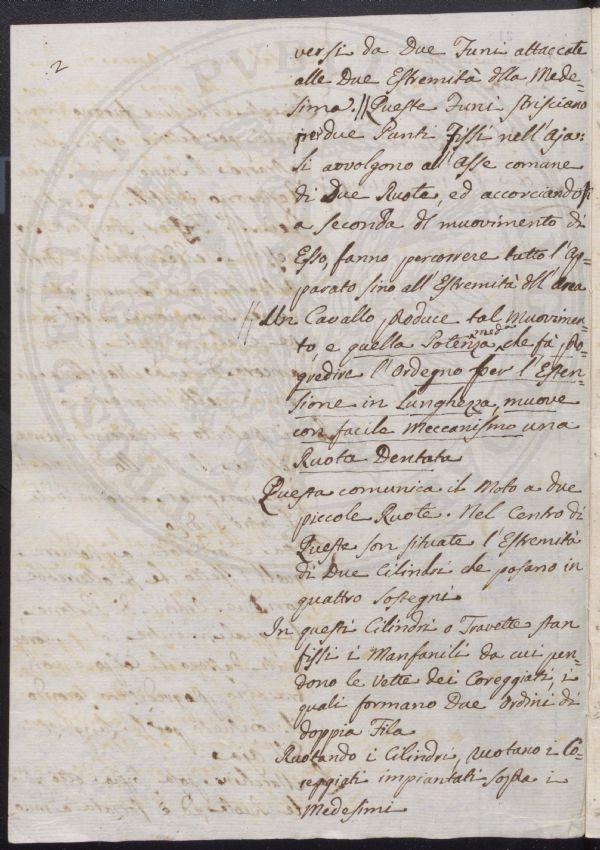 2
versi da Due Funi attaccate
alle Due Estremità della Mede=
sima.// Queste Funi strisciano
per due Punti Fissi nell'Aja:
si avvolgono all'asse comune
di Due Ruote, ed accorciandosi
a seconda del muovimento di
Esso, fanno percorrere tutto l'Ap=
parato sino all'Estremità dell'area
// Un Cavallo produce tal Muovimen=
to, e quella Potenza meda che fà pro
gredire l'Ordegno per l'Esten=
sione in Lunghezza, muove
con facile Meccanismo una
Ruota Dentata
Questa comunica il Moto a due
piccole Ruote. Nel Centro di
Queste son situate l'Estremità
di Due Cilindri che posano in
quattro Sostegni
In questi Cilindri o Travette stan
fissi i Manfanili da cui pen=
dono le Vette dei Coreggiati, i
quali formano Due Ordini di
doppia Fila
Ruotando i Cilindri, ruotano i Co=
reggiati impiantati sopra i
Medesimi
PUBLI
PROSPERITATI